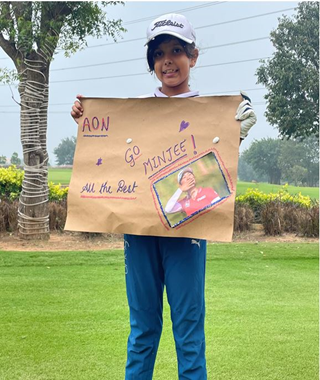 Titleist
AON
GO
MINJEE!
All the Best